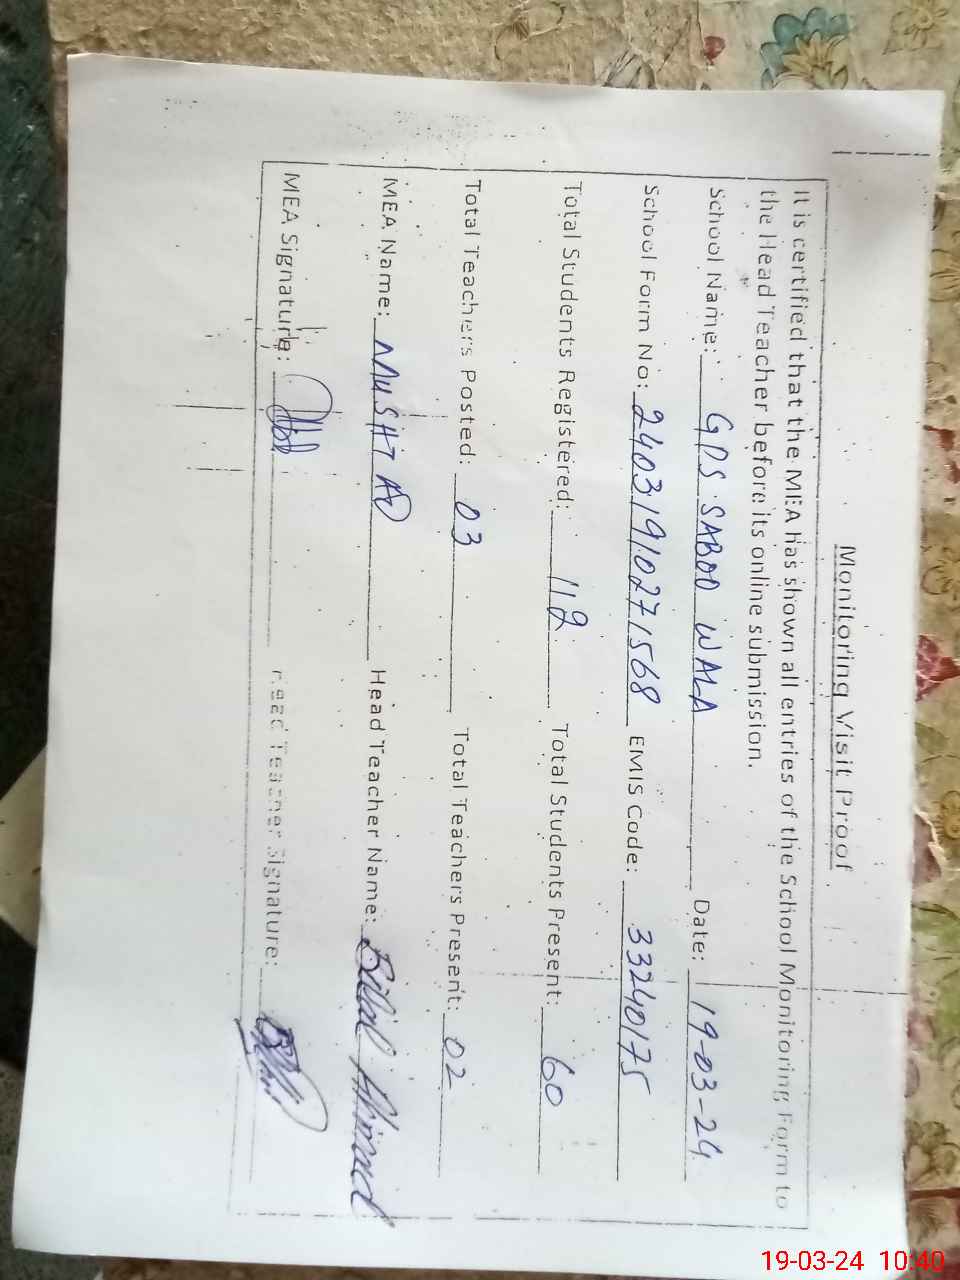 Monitoring Visit Proof
It is certified that the MEA has shown all entries of the School Monitoring Form to
the Head Teacher before its online submission.
School Name: GPS SABOO WALA Date: 19-03-24
School Form No: 24031910271568 EMIS Code: 33240175
Total Students Registered: 112 Total Students Present: 60
Total Teachers Posted: 03 Total Teachers Present: 02
MEA Name: MUSHTAQ Head Teacher Name: Bilal Ahmad
MEA Signature: Head Teacher Signature:
19-03-24 10:40